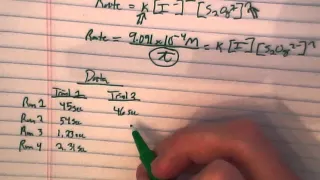 Rate = K [I⁻] [S₂O₈²⁻]
Rate = 9.091 × 10⁻⁴ M = K [I⁻] [S₂O₈²⁻]
Data
Trial 1 Trial 2
Run 1 45 sec 46 sec
Run 2 54 sec
Run 3 1.23 sec
Run 4 2.31 sec